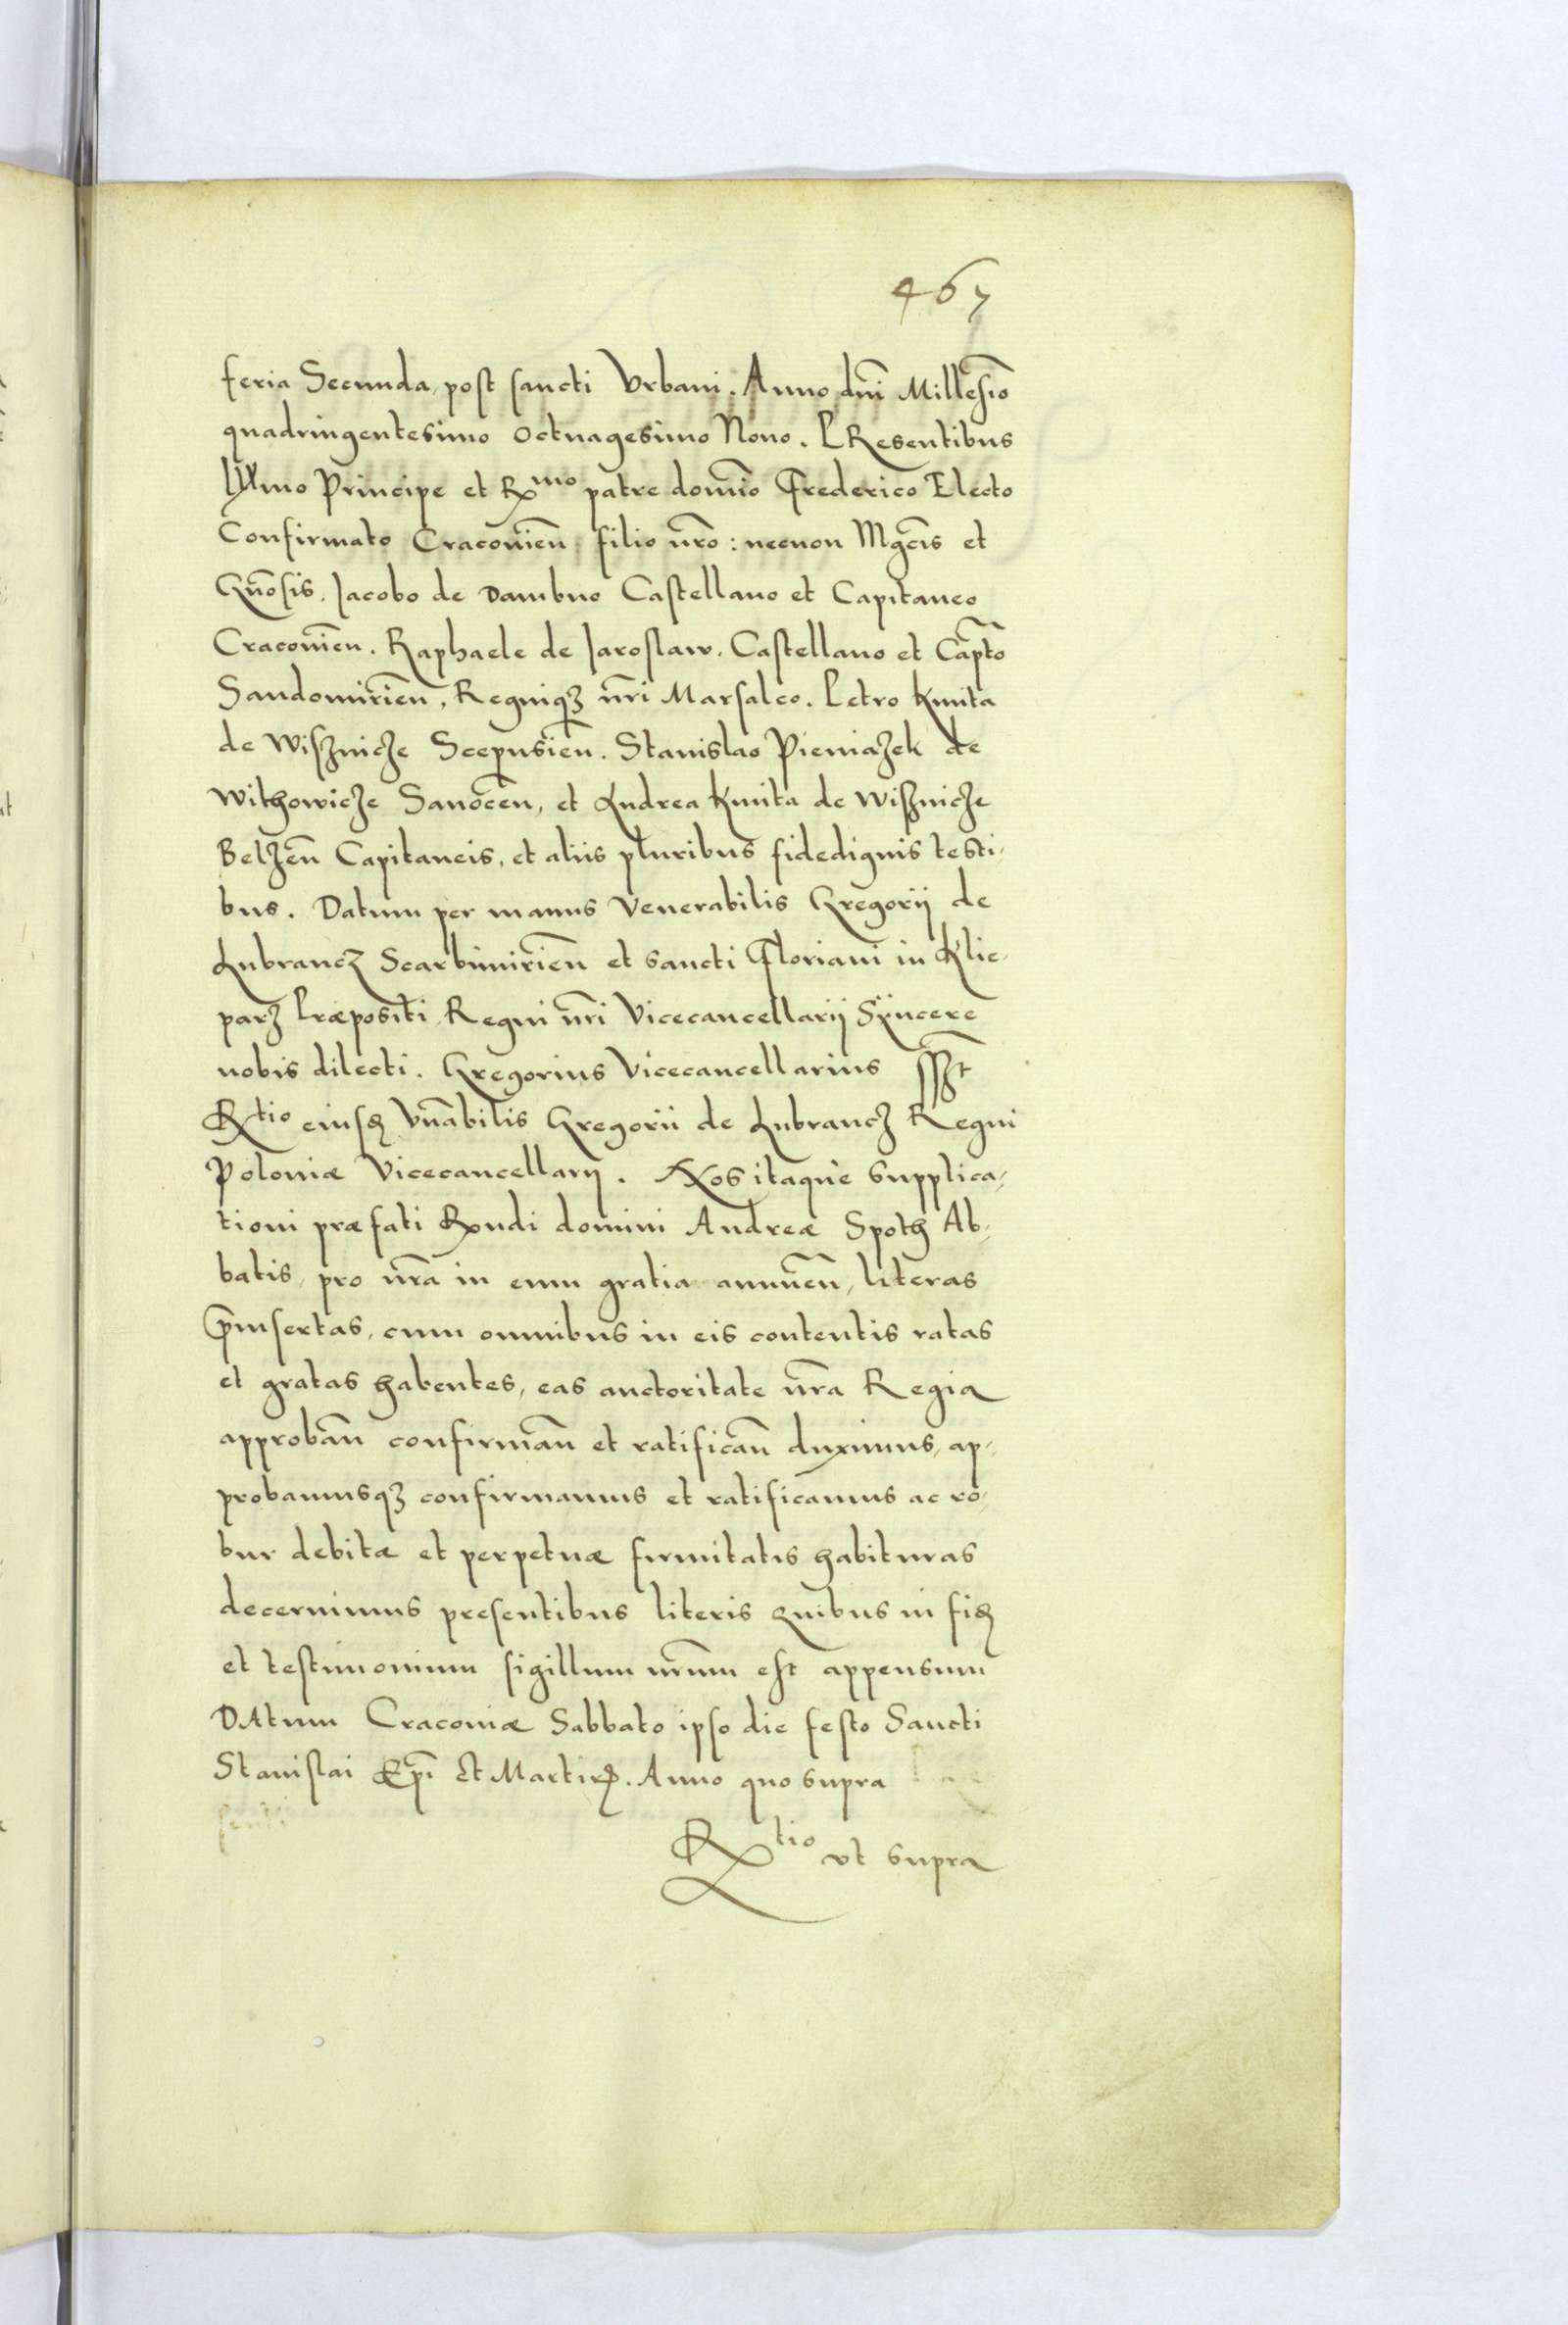 467
feria Secunda, post sancti Vrbani. Anno dñi Millesĩo
quadringentesimo Octuagesimo Nono. PResentibus
Illmo Principe et Rx^mo patre domĩo Frederico Electo
Confirmato Cracovieñ filio nr̃o: necnon Mgcĩs et
Gñosis. Jacobo de Dambno Castellano et Capitaneo
Cracovieñ. Raphaele de Jaroslaw. Castellano et Capt̃o
Sandomirieñ, Regniqꝫ nr̃i Marsalco. Petro Kmita
de Wisznicze Scepusieñ. Stanislao Pieniazek de
Withowicze Sanoceñ, et Andrea Kmita de Wisznicze
Belzeñ Capitaneis, et aliis pluribus fidedignis testi-
bus. Datum per manus Venerabilis Gregorij de
Lubrancz Scarbimirieñ et sancti Floriani in Klie-
parz Præpositi, Regni nr̃i Vicecancellarij Syncere
nobis dilecti. Gregorius Vicecancellarius sszt
Rx^tio eiusd Vñabilis Gregorii de Lubrancz Regni
Poloniæ Vicecancellarij. Nos itaque supplica-
tioni præfati Rxndi domini Andreæ Spoth Ab-
batis, pro nr̃a in eum gratia annueñ, literas
p̃insertas, cum omnibus in eis contentis ratas
et gratas habentes, eas auctoritate nr̃a Regia
approbañ confirmañ et ratificañ duximus, ap-
probamusqꝫ confirmamus et ratificamus ac ro-
bur debitæ et perpetuæ firmitatis habituras
decernimus presentibus literis Quibus in fid
et testimonium sigillum nr̃um est appensum
DAtum Cracoviæ Sabbato ipso die festo Sancti
Stanislai Ep̃i Et Martirꝭ. Anno quo supra
Rx^tio vt supra